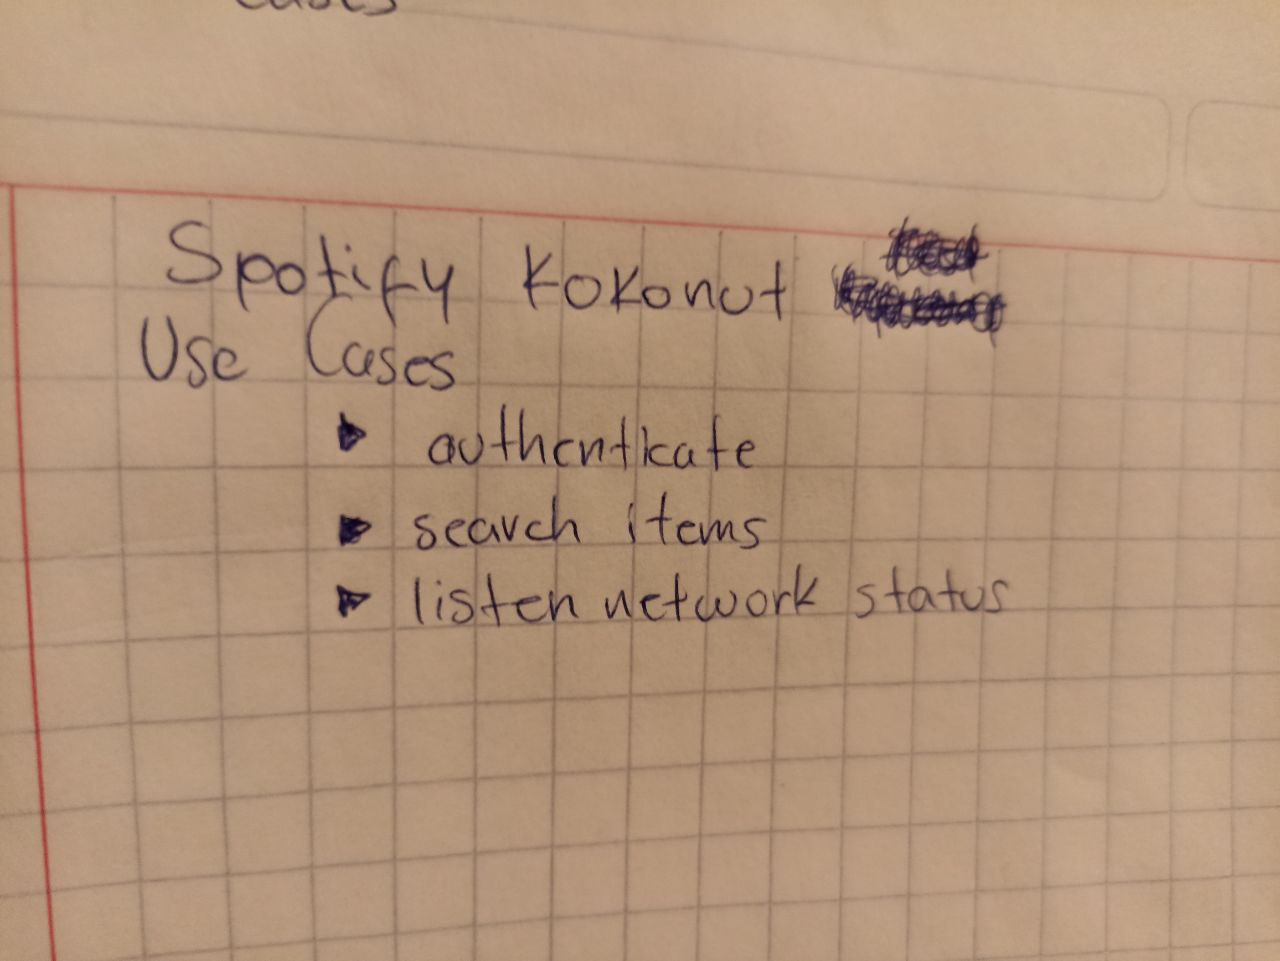 cases
Spotify Kokonut
Use Cases
authenticate
search items
listen network status